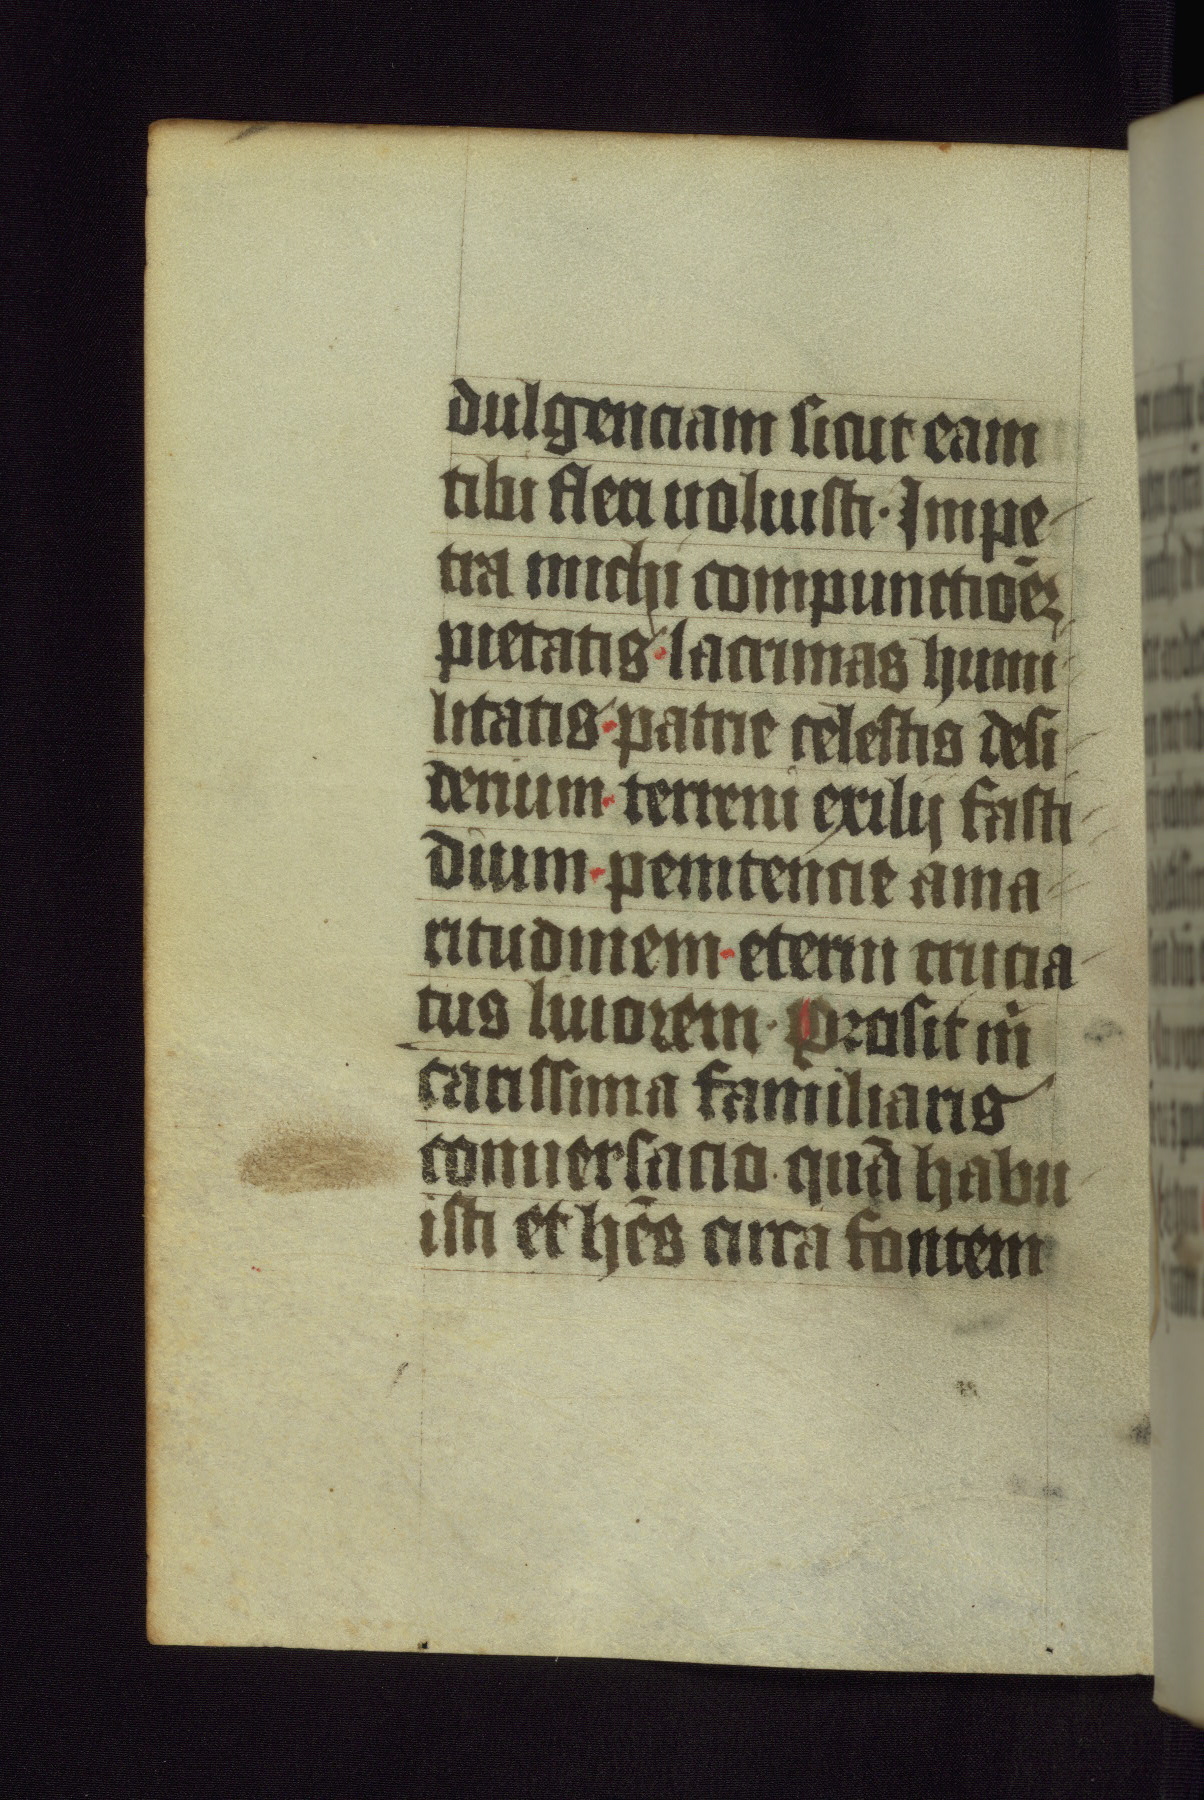 dulgenciam sicut eam
tibi fieri uoluisti. Impe
tra michi compunctiōẽ
pietatis. lacrimas humi
litatis. patrie celestis desi
derium. terreni exilij fasti
dium. penitencie ama
ritudinem. eterni crucia
tus liuorem. Prosit m̄
carissima familiaris
conuersacio. quā habu
isti et hēs circa fontem